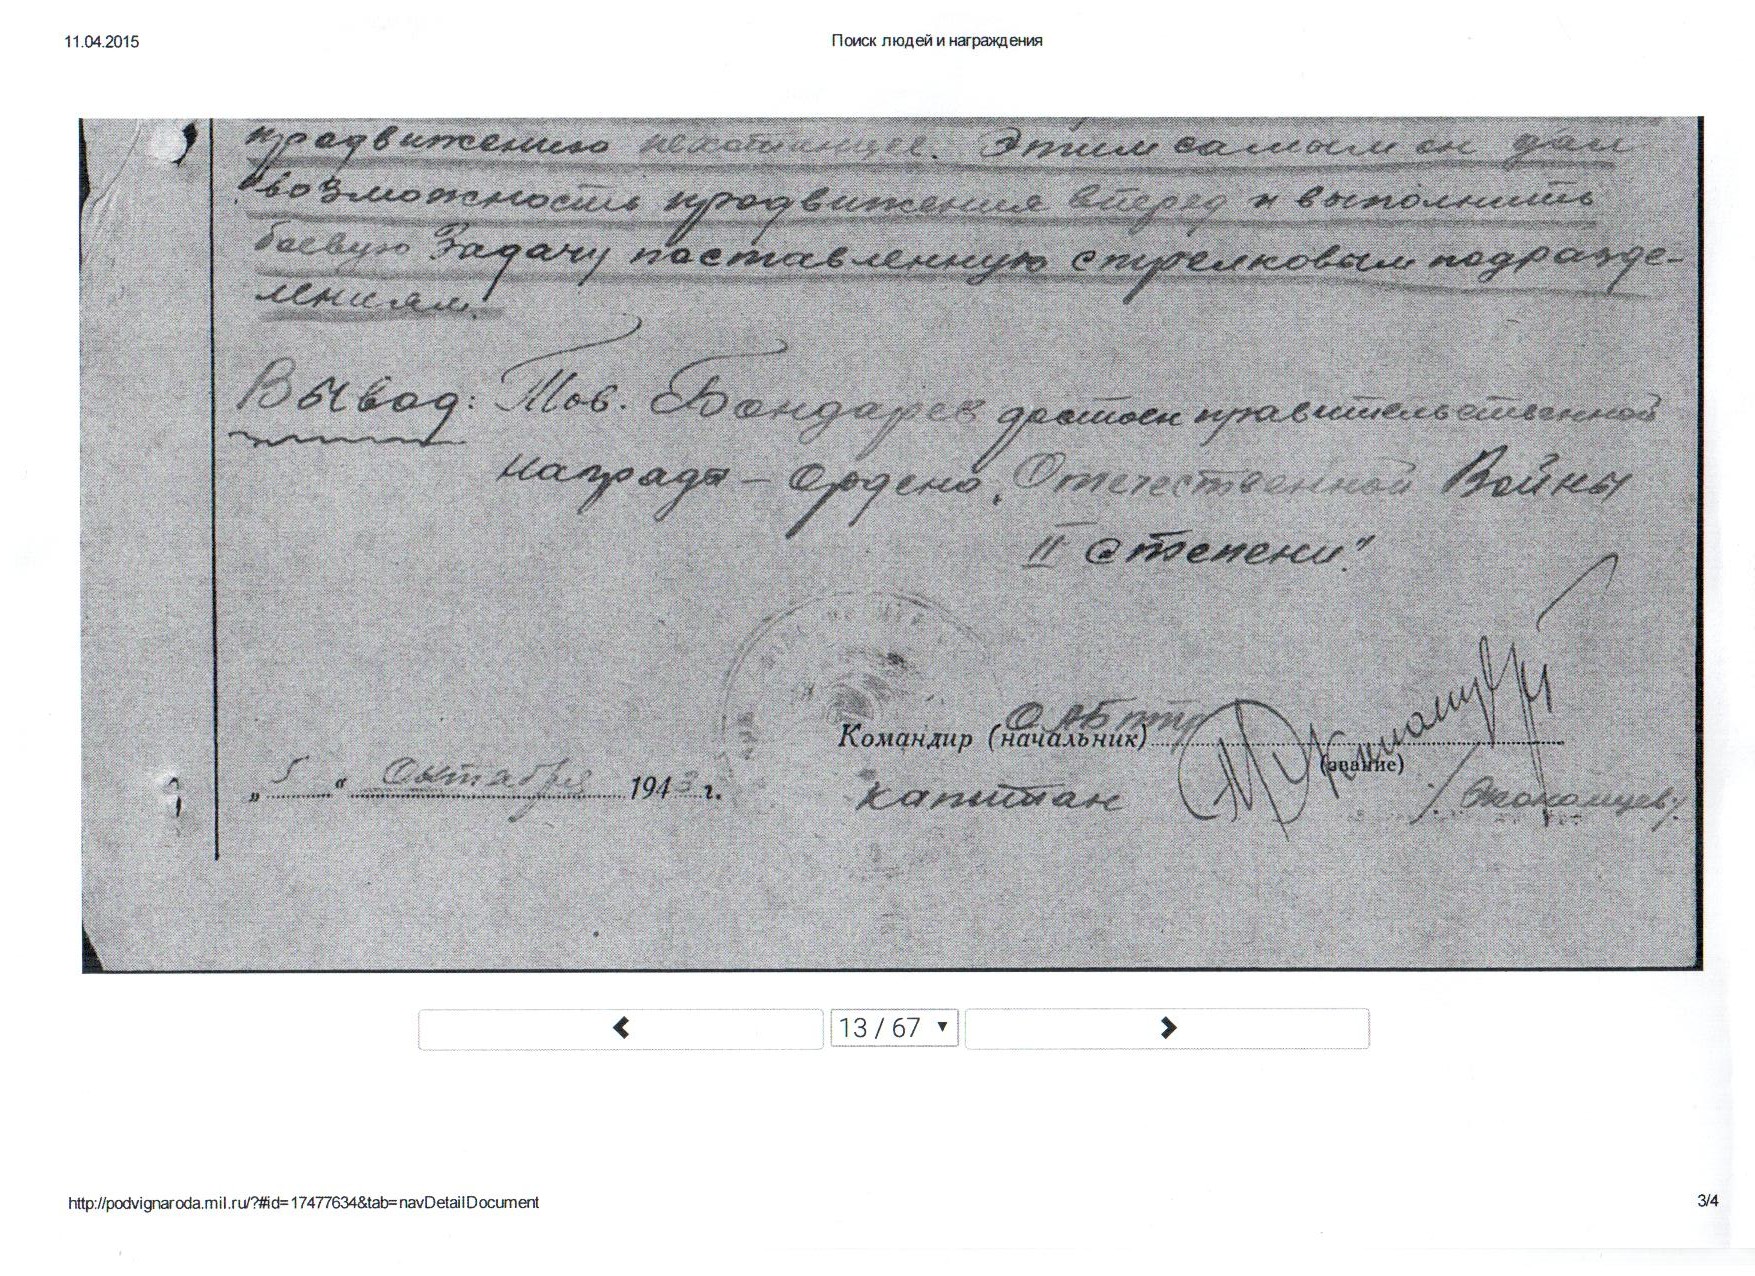 11.04.2015
Поиск людей и награждения
продвижению пехотинцев. Этим самым он дал
возможность продвижения вперед и выполнить
боевую задачу поставленную стрелковым подразде-
лениям.
Вывод: Тов. Бондарев достоен правительственной
награды – Ордено „Отечественной Войны
II степени."
Командир (начальник) ОАБ птр
(звание)
„ 5 “ Октября 1943 г.
капитан / Экономцев /.
13 / 67
http://podvignaroda.mil.ru/?#id=17477634&tab=navDetailDocument
3/4